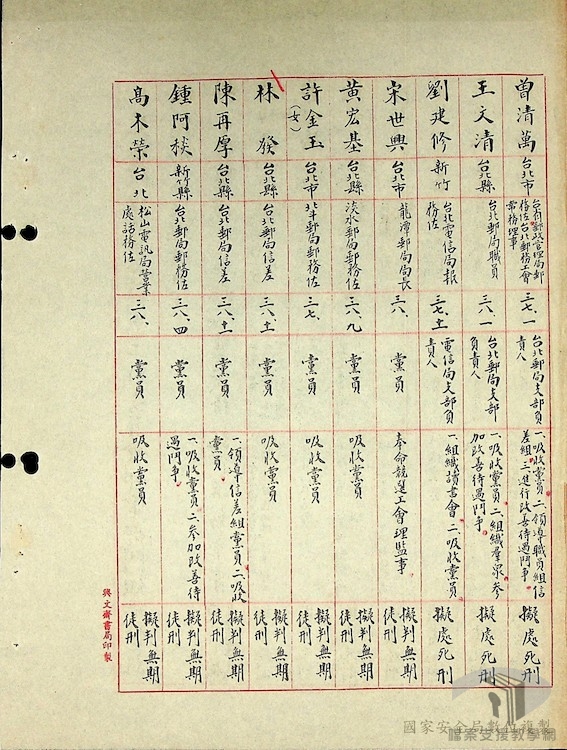 曾清萬
台北市
台灣郵政管理局郵
務佐台北郵務工會
常務理事
三七、一
台北郵局支部負
責人
一、吸收黨員二、領導職員組信
差組三、進行改善待遇鬥爭
擬處死刑
王文清
台北縣
台北郵局職員
三八、一
台北郵局支部
負責人
一、吸收黨員二、組織羣眾參
加改善待遇鬥爭
擬處死刑
劉建修
新竹
台北電信局報
務佐
三七、十一
電信局支部負
責人
一、組織讀書會 二、吸收黨員
擬處死刑
宋世興
台北市
龍潭郵局局長
三八、
黨員
奉命競選工會理監事
擬判無期
徒刑
黃宏基
台北縣
淡水郵局郵務佐
三八、九
黨員
吸收黨員
擬判無期
徒刑
許金玉
(女)
台北市
北斗郵局郵務佐
三七、
黨員
吸收黨員
擬判無期
徒刑
林發
台北縣
台北郵局信差
三八、十一
黨員
吸收黨員
擬判無期
徒刑
陳再厚
台北縣
台北郵局信差
三八、十一
黨員
一、領導信差組黨員二、吸收
黨員
擬判無期
徒刑
鍾阿棪
新竹縣
台北郵局郵務佐
三八、四
黨員
一、吸收黨員二、參加改善待
遇鬥爭
擬判無期
徒刑
高木榮
台北
松山電訊局營業
處話務佐
三八、
黨員
吸收黨員
擬判無期
徒刑
興文齋書局印製
國家安全局數位複製
檔案支援教學網